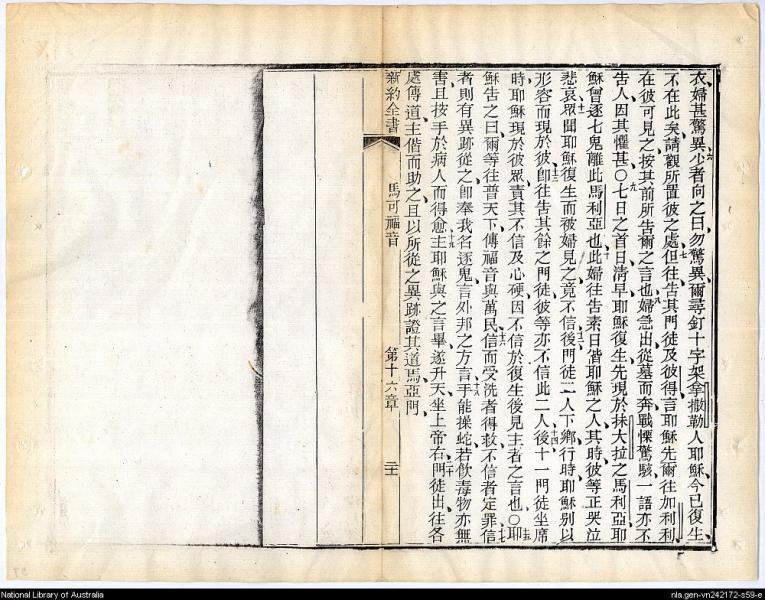 衣婦甚驚異六少者向之曰勿驚異爾尋釘十字架拿撒勒人耶穌今已復生
不在此矣請觀所置彼之處七但往告其門徒及彼得言耶穌先爾往加利利
在彼可見之按其前所告爾之言也八婦急出從墓而奔戰慄驚駭一語亦不
告人因其懼甚〇九七日之首日清早耶穌復生先現於抹大拉之馬利亞耶
穌曾逐七鬼離此馬利亞也十此婦往告素日偕耶穌之人其時彼等正哭泣
悲哀十一眾聞耶穌復生而被婦見之竟不信十二後門徒二人下鄉行時耶穌別以
形容而現於彼十三卽往告其餘之門徒彼等亦不信此二人十四後十一門徒坐席
時耶穌現於彼眾責其不信及心硬因不信於復生後見主者之言也〇十五耶
穌告之曰爾等往普天下傳福音與萬民十六信而受洗者得救不信者定罪十七信
者則有異跡從之卽奉我名逐鬼言外邦之方言十八手能操蛇若飲毒物亦無
害且按手於病人而得愈十九主耶穌與之言畢遂升天坐上帝右二十門徒出往各
處傳道主偕而助之且以所從之異跡證其道焉亞門
新約全書 馬可福音 第十六章 三十
National Library of Australia
nla.gen-vn242172-s59-e